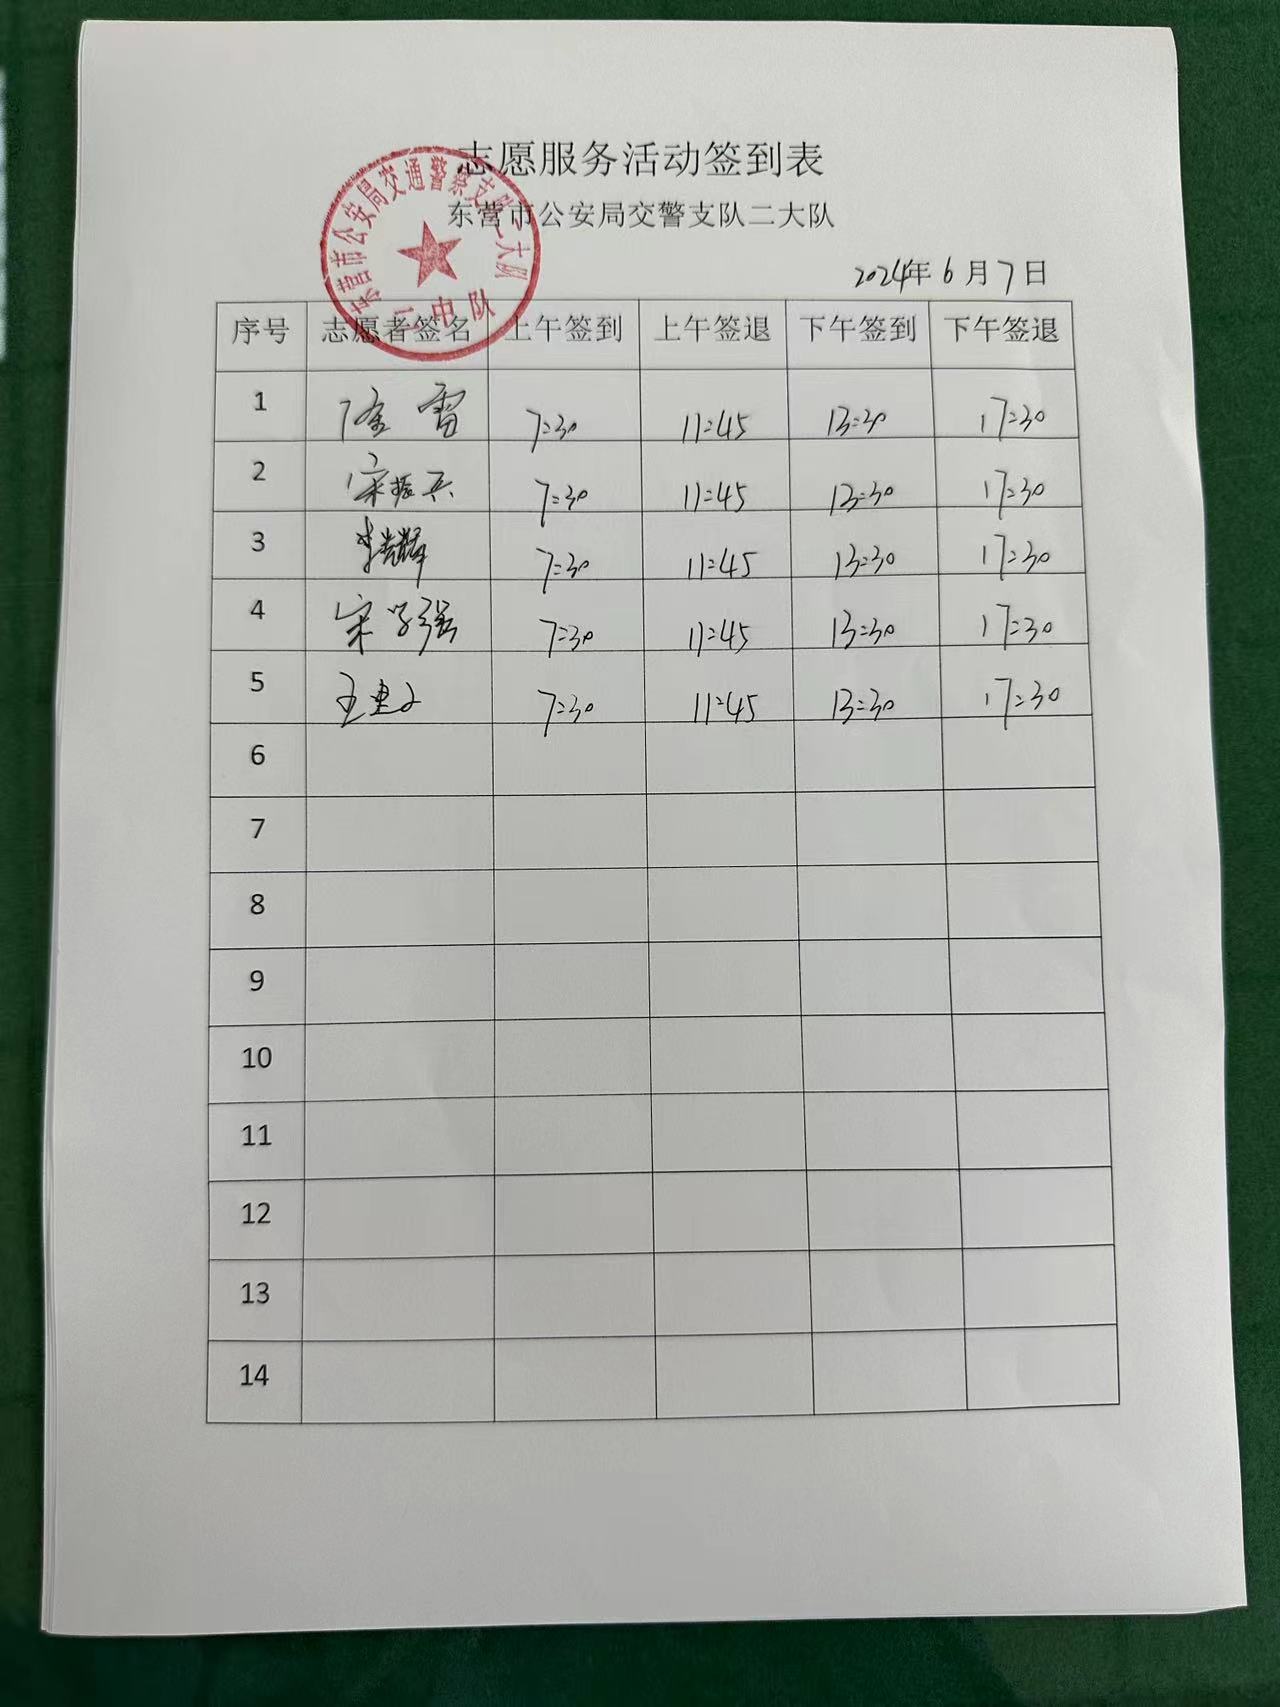 志愿服务活动签到表
东营市公安局交警支队二大队
东营市公安局交通警察支队二大队
二中队
2024年6月7日
序号 志愿者签名 上午签到 上午签退 下午签到 下午签退
1 隆雷 7:30 11:45 13:30 17:30
2 宋振兵 7:30 11:45 13:30 17:30
3 7:30 11:45 13:30 17:30
4 宋学强 7:30 11:45 13:30 17:30
5 7:30 11:45 13:30 17:30
6
7
8
9
10
11
12
13
14